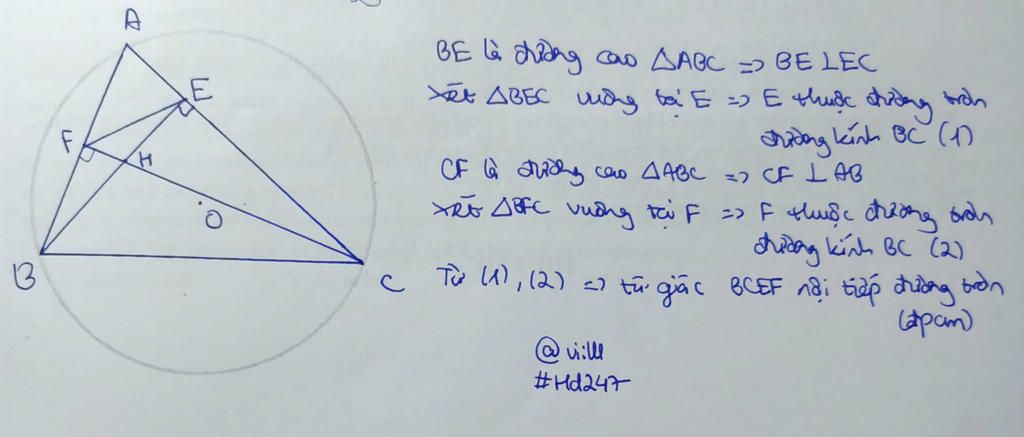 A
E
F
H
O
B
C
BE là đường cao △ABC => BE ⊥ EC
Xét △BEC vuông tại E => E thuộc đường tròn
đường kính BC (1)
CF là đường cao △ABC => CF ⊥ AB
Xét △BFC vuông tại F => F thuộc đường tròn
đường kính BC (2)
Từ (1), (2) => tứ giác BCEF nội tiếp đường tròn
(đpcm)
#Hd247